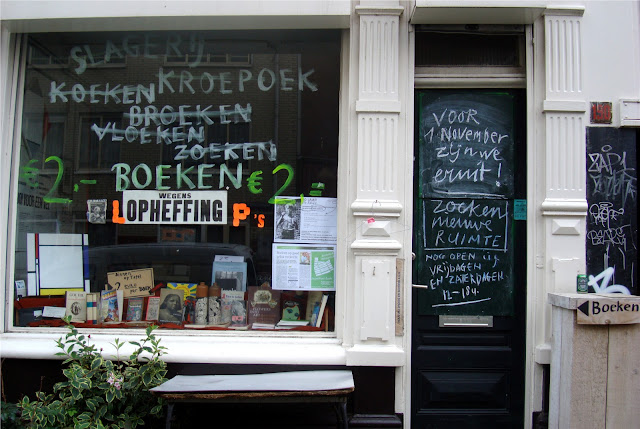 SLAGERIJ
KROEPOEK
KOEKEN
BROEKEN
VLOEKEN
ZOEKEN
€2,- BOEKEN €2,=
WEGENS
LOPHEFFING P's
VOOR
1 November
zijn we
eruit!
ZOEKEN
nieuwe
RUIMTE
NOG OPEN
VRIJDAGEN
EN ZATERDAGEN
12-18u.
Boeken